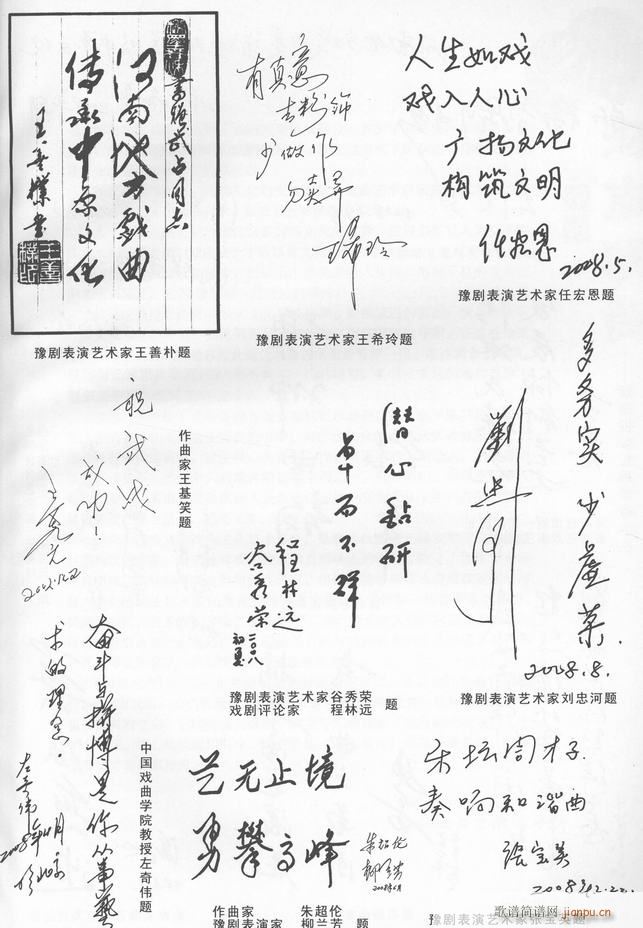 河南地方戏曲
传承中原文化
王善朴书
豫剧表演艺术家王善朴题
有真意
去粉饰
少做作
勿卖弄
王希玲
豫剧表演艺术家王希玲题
人生如戏
戏入人心
广扬文化
构筑文明
任宏恩
2008.5.
豫剧表演艺术家任宏恩题
祝
成功!
作曲家王基笑题
潜心钻研
卓而不群
程林远
谷秀荣
二〇〇八
初夏
豫剧表演艺术家谷秀荣
戏剧评论家 程林远 题
多务实 少虚荣.
刘忠河
2008.8.
豫剧表演艺术家刘忠河题
奋斗与拼搏是你从事艺
术的理念
左奇伟
中国戏曲学院教授左奇伟题
艺无止境
勇攀高峰
朱超伦
柳兰芳
2008年6月
作曲家 朱超伦
豫剧表演家 柳兰芳 题
乐坛周才子
奏响和谐曲
张宝英
豫剧表演艺术家张宝英题
歌谱简谱网
jianpu.cn